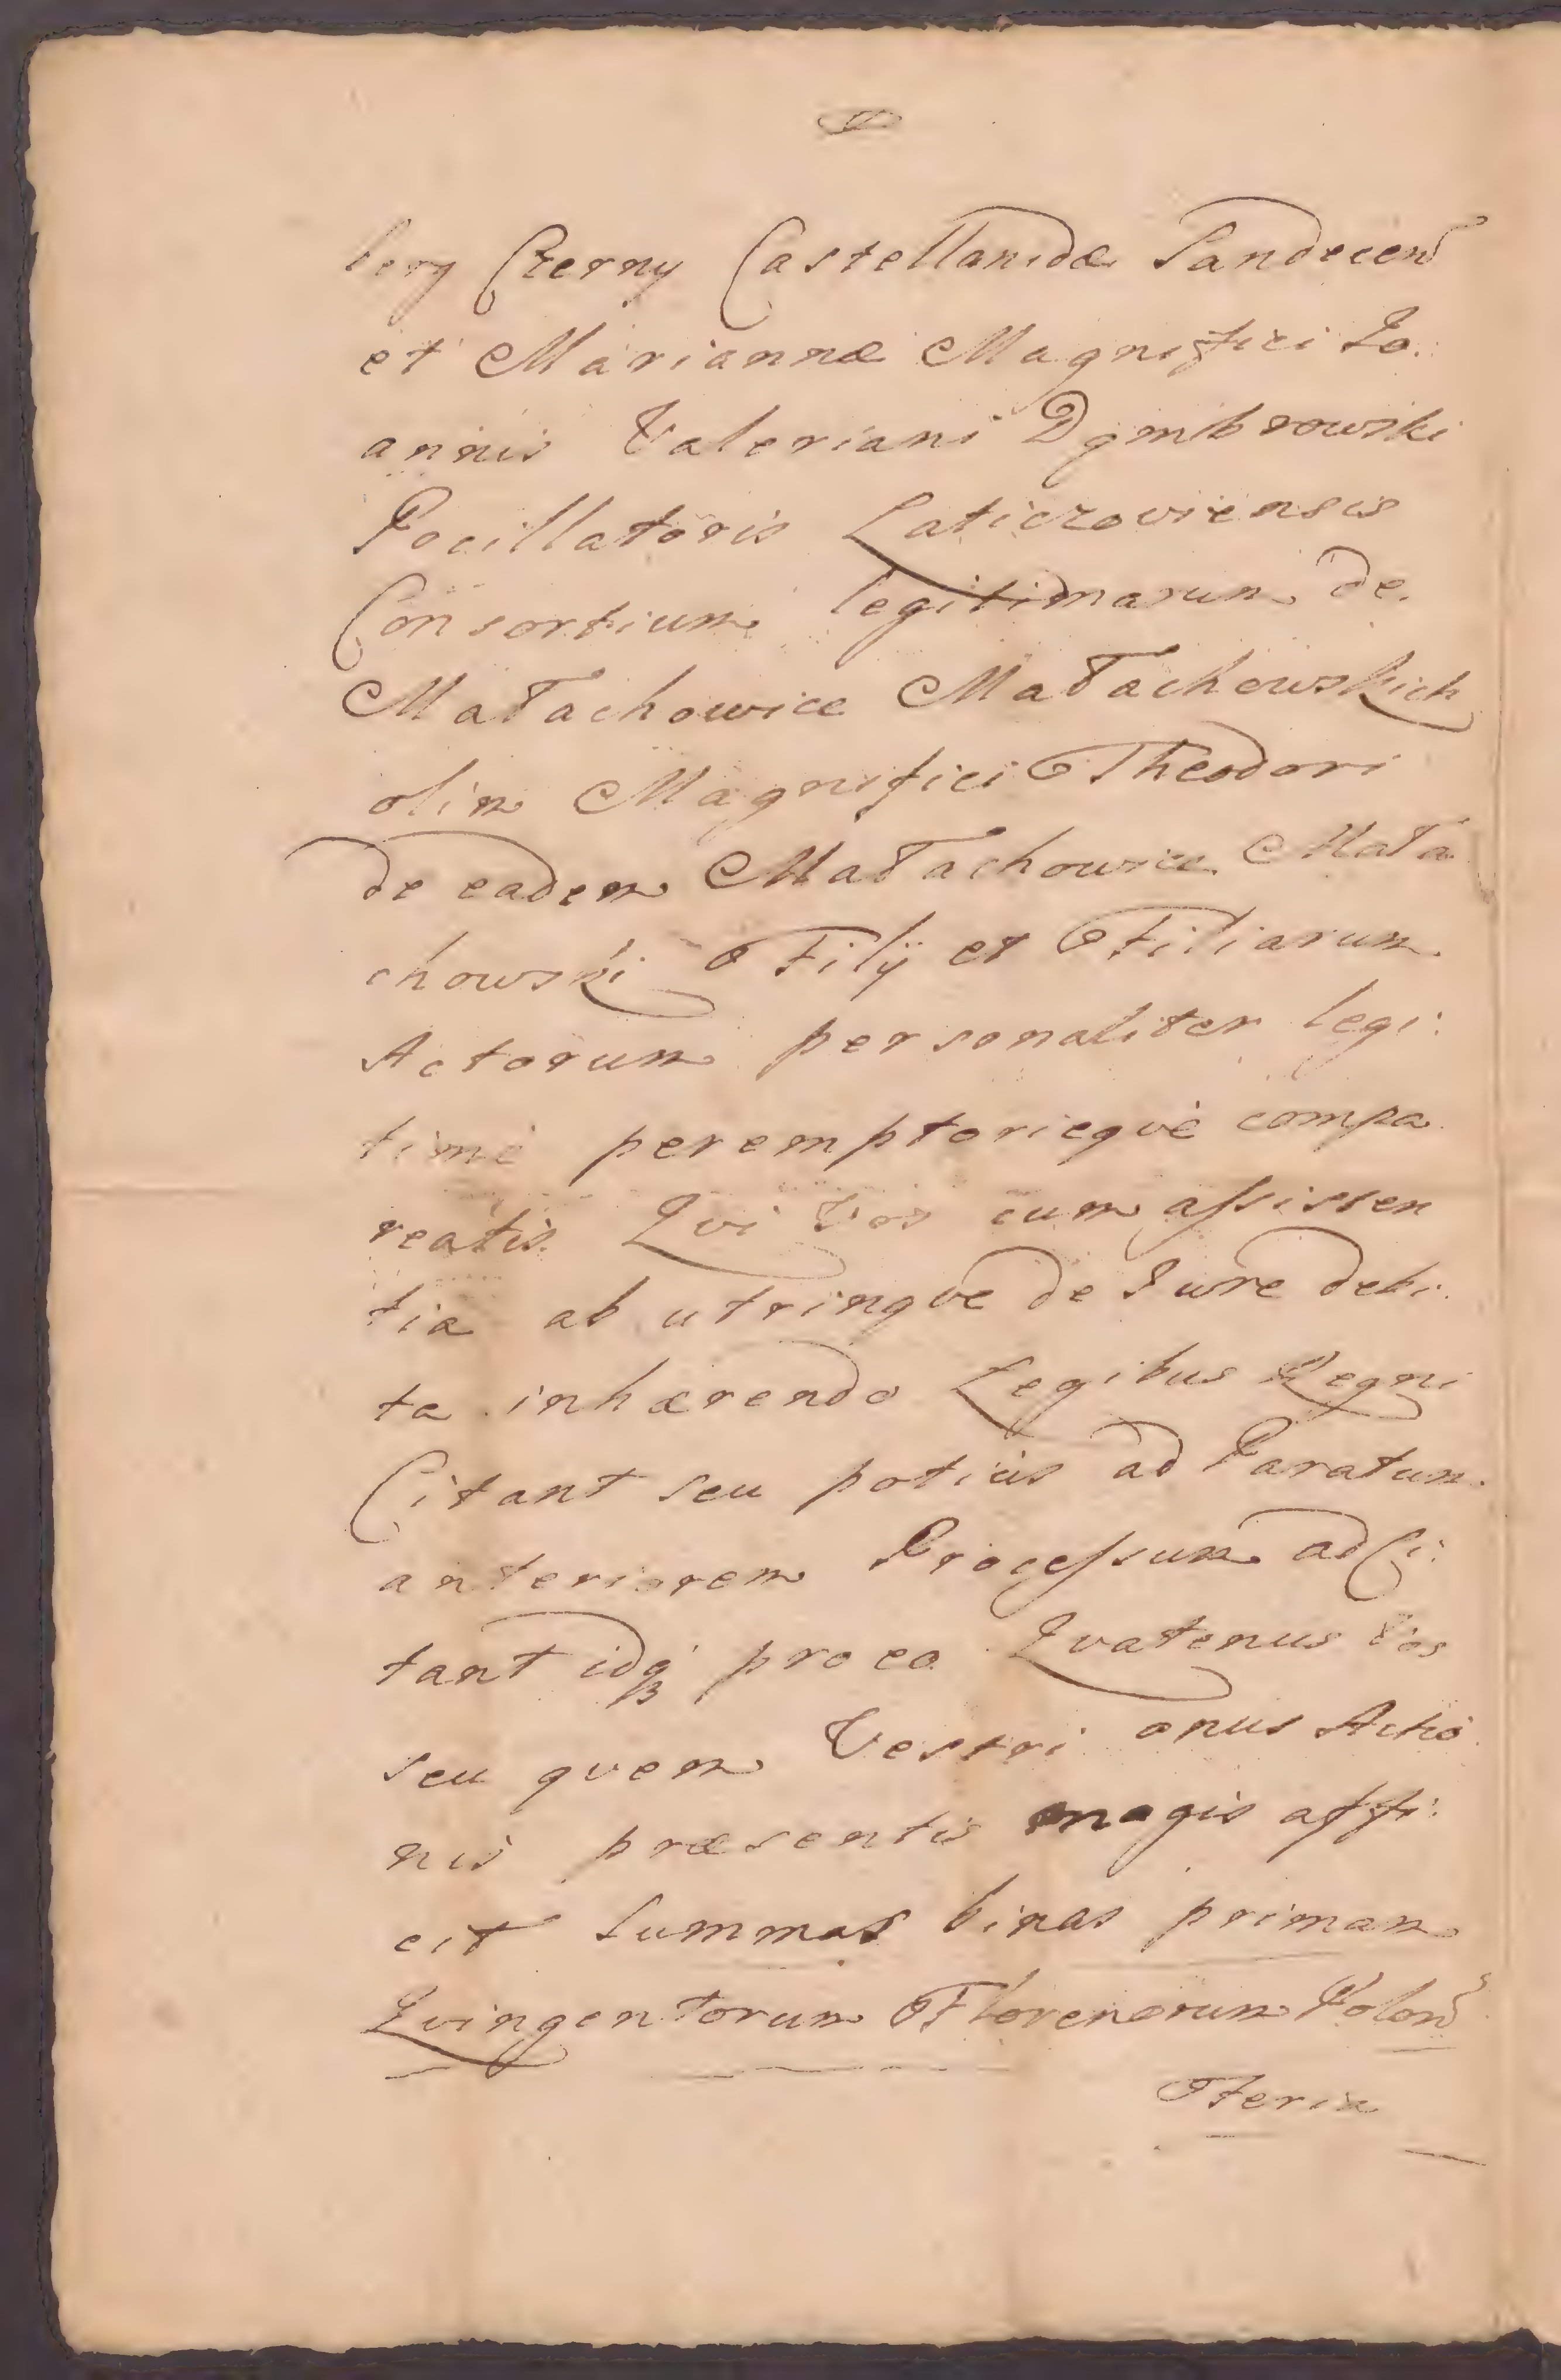 berg Czerny Castellanidæ Sandecen
et Mariannæ Magnifici Jo:
annis Valeriani Dąmbrowski
Pocillatoris Laticzoviensis
Consortium legitimarum de
Małachowice Małachowskich
olim Magnifici Theodori
de eadem Małachowice Mała
chowski Filij et Filiarum
Actorum personaliter legi:
timè peremptorieqvè compa
reatis. Qvi Vos cum assisten
tia ab utrinqve de Jure debi:
ta inhærendo Legibus Regni
Citant seu potiùs ad Paratum
anteriorem Processum adCi:
tant idq₃ pro eo Qvatenus Vos
seu qvem Vestri onus Actio
nis præsentis magis affi:
cit Summas binas primam
Qvingentorum Florenorum Polon